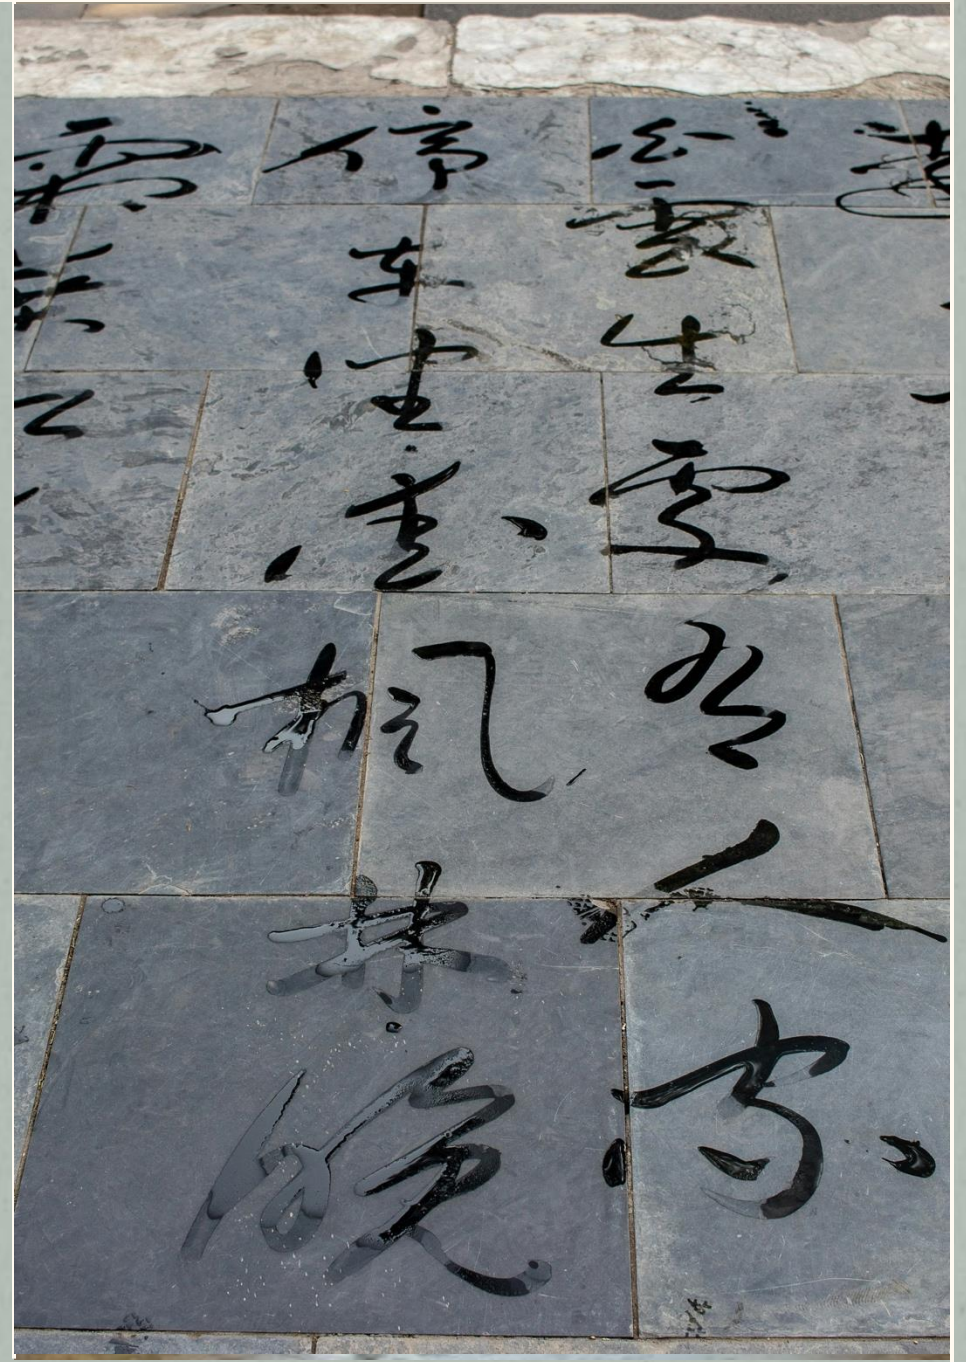 白雲生處有人家
停車坐愛楓林晚
霜葉